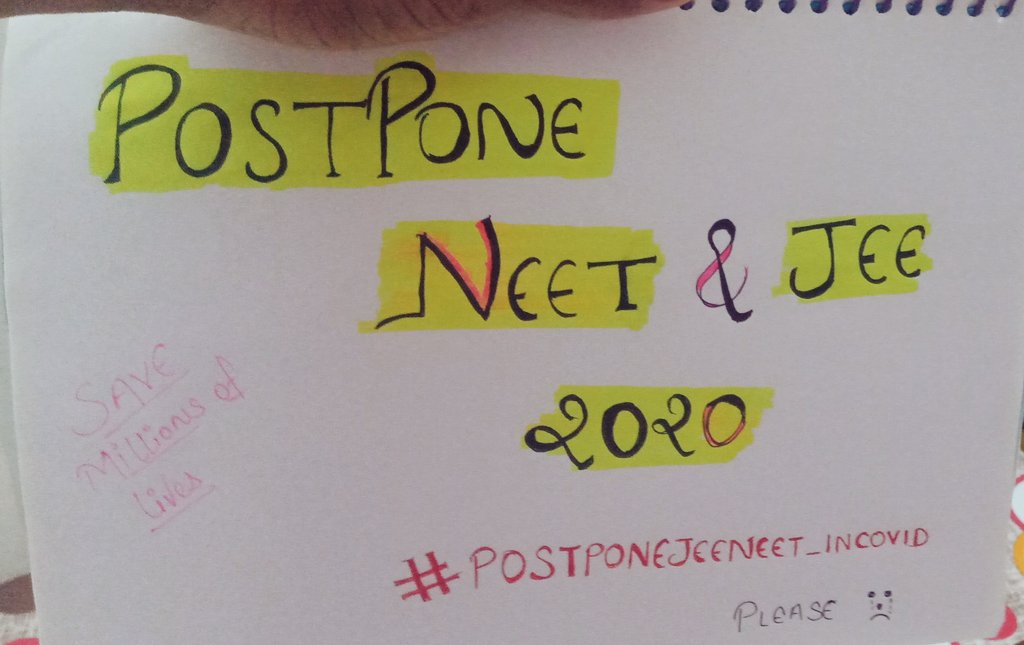 POSTPONE
NEET & JEE
2020
SAVE
Millions of
lives
#POSTPONEJEENEET_INCOVID
PLEASE